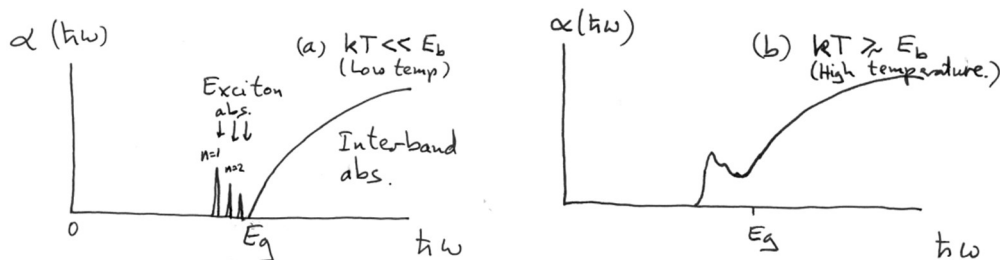 α (ħω)
(a) kT << E_b
(Low temp)
Exciton
abs.
↓↓↓
n=1
n=2
Inter-band
abs.
0
E_g
ħω
α(ħω)
(b) kT ≳ E_b
(High temperature.)
E_g
ħω